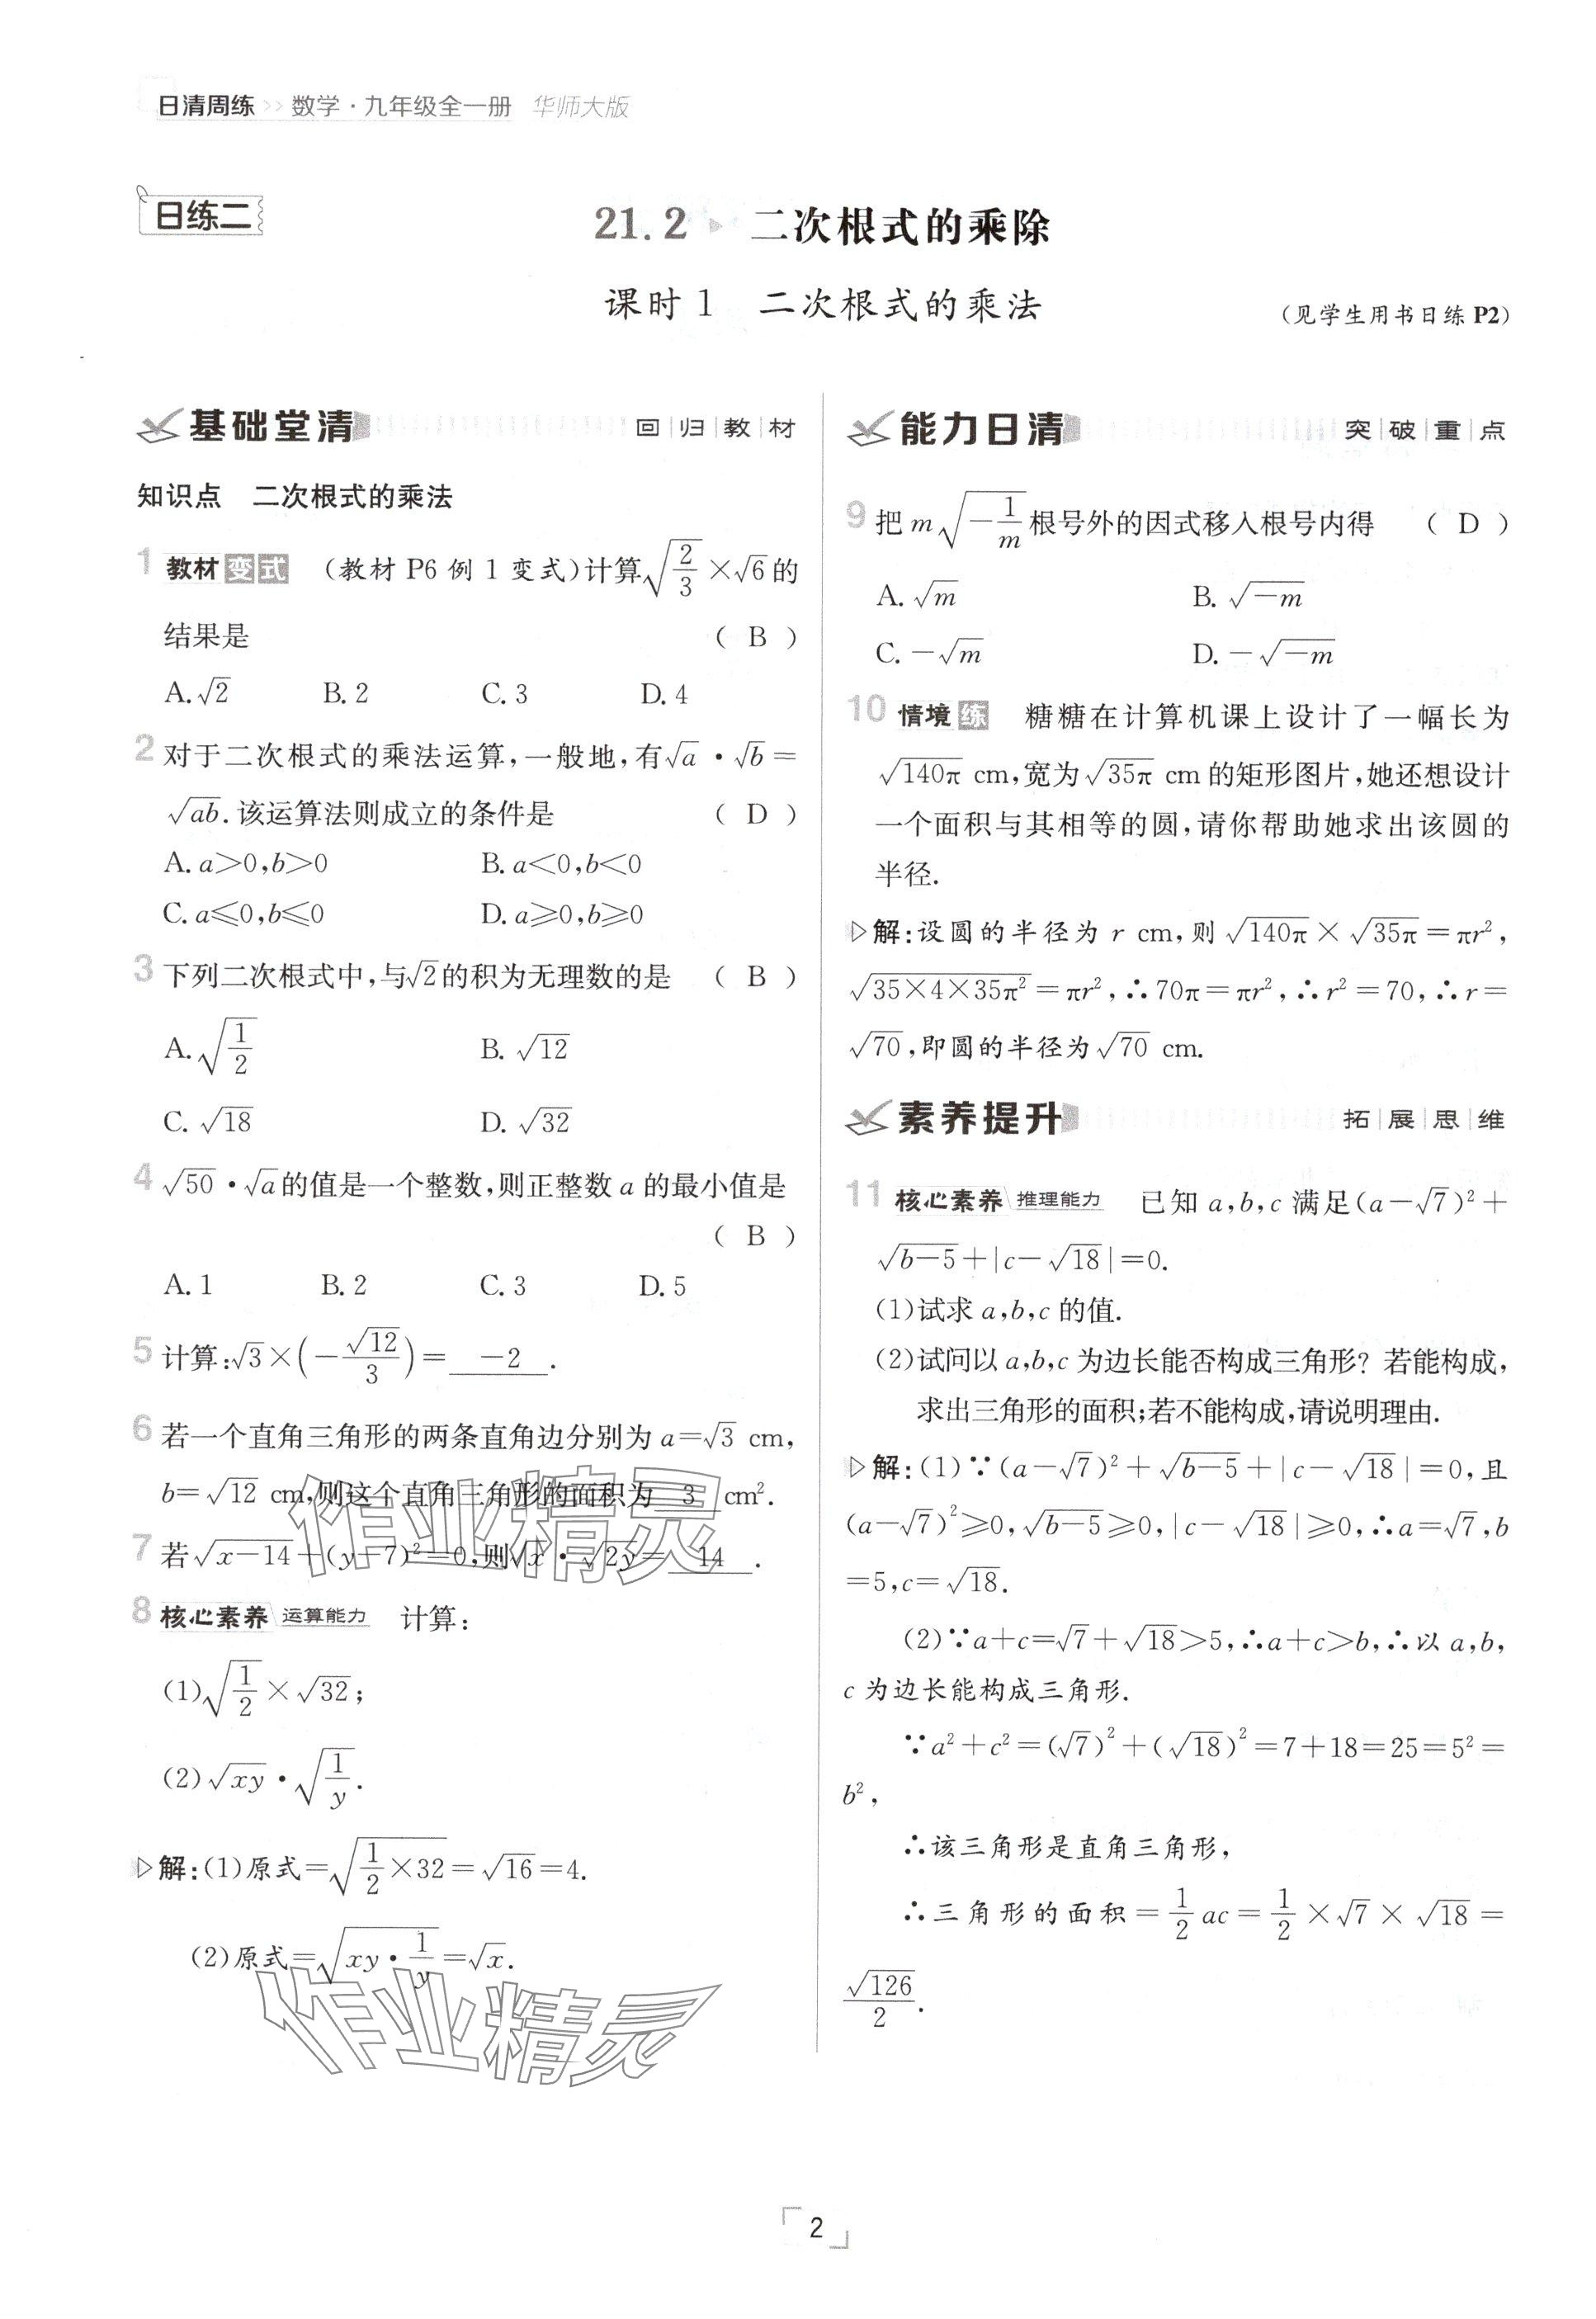 日清周练 >> 数学·九年级全一册 华师大版
日练二
21.2 二次根式的乘除
课时1 二次根式的乘法
(见学生用书日练P2)
基础堂清 回|归|教|材
知识点 二次根式的乘法
1 教材变式 (教材 P6 例 1 变式)计算√(2/3)×√6的
结果是 ( B )
A.√2 B.2 C.3 D.4
2 对于二次根式的乘法运算,一般地,有√a·√b=
√ab.该运算法则成立的条件是 ( D )
A.a>0,b>0 B.a<0,b<0
C.a≤0,b≤0 D.a≥0,b≥0
3 下列二次根式中,与√2的积为无理数的是 ( B )
A.√(1/2) B.√12
C.√18 D.√32
4 √50·√a的值是一个整数,则正整数 a 的最小值是
( B )
A.1 B.2 C.3 D.5
5 计算:√3×(-√12/3)= -2 .
6 若一个直角三角形的两条直角边分别为 a=√3 cm,
b=√12 cm,则这个直角三角形的面积为 3 cm².
7 若√(x-14)+(y-7)²=0,则√x·√2y= 14 .
8 核心素养 运算能力 计算:
(1)√(1/2)×√32;
(2)√xy·√(1/y).
解:(1)原式=√(1/2×32)=√16=4.
(2)原式=√(xy·1/y)=√x.
作业精灵
作业精灵
能力日清 突|破|重|点
9 把 m√(-1/m)根号外的因式移入根号内得 ( D )
A.√m B.√-m
C.-√m D.-√-m
10 情境练 糖糖在计算机课上设计了一幅长为
√140π cm,宽为√35π cm的矩形图片,她还想设计
一个面积与其相等的圆,请你帮助她求出该圆的
半径.
解:设圆的半径为 r cm,则√140π×√35π=πr²,
√(35×4×35π²)=πr²,∴70π=πr²,∴r²=70,∴r=
√70,即圆的半径为√70 cm.
素养提升 拓|展|思|维
11 核心素养 推理能力 已知 a,b,c 满足(a-√7)²+
√(b-5)+|c-√18|=0.
(1)试求 a,b,c 的值.
(2)试问以 a,b,c 为边长能否构成三角形?若能构成,
求出三角形的面积;若不能构成,请说明理由.
解:(1)∵(a-√7)²+√(b-5)+|c-√18|=0,且
(a-√7)²≥0,√(b-5)≥0,|c-√18|≥0,∴a=√7,b
=5,c=√18.
(2)∵a+c=√7+√18>5,∴a+c>b,∴以 a,b,
c 为边长能构成三角形.
∵a²+c²=(√7)²+(√18)²=7+18=25=5²=
b²,
∴该三角形是直角三角形,
∴三角形的面积=1/2 ac=1/2×√7×√18=
√126/2.
2